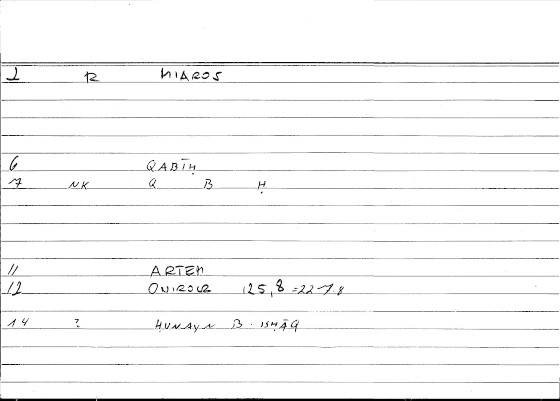 2 R MIAROS
6 QABĪḤ
7 NK Q B Ḥ
11 ARTEM
12 ONIROCR 125,8 =227.8
14 ? ḤUNAYN B. ISḤĀQ